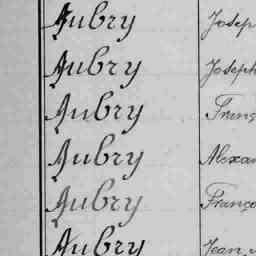 Aubry Josep
Aubry Joseph
Aubry Franç
Aubry Alexan
Aubry Franço
Aubry Jean